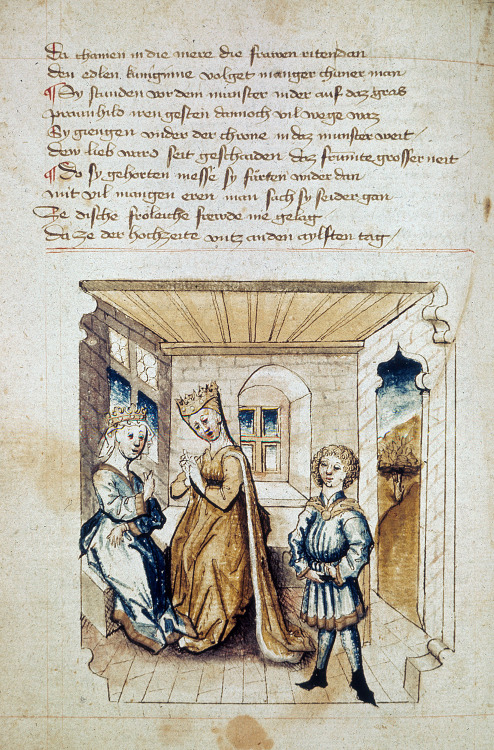 Da chamen in die mere die frawen riten dan
den edlen kuniginne volget manger chuner man
¶ Sy stunden vor dem munster nider auf daz gras
praunhild iren gesten dannoch vil wege waz
Sy giengen vnder der chrone in daz munster weit /
dew lieb ward seit geschaiden daz frumte grosser neit
¶ Do sy gehorten messe sy fürten wider dan
mit vil mangen eren man sach sy seider gan
Ze dische froleiche frewde nie gelag
Da ze der hochzeite vntz an den aylften tag /